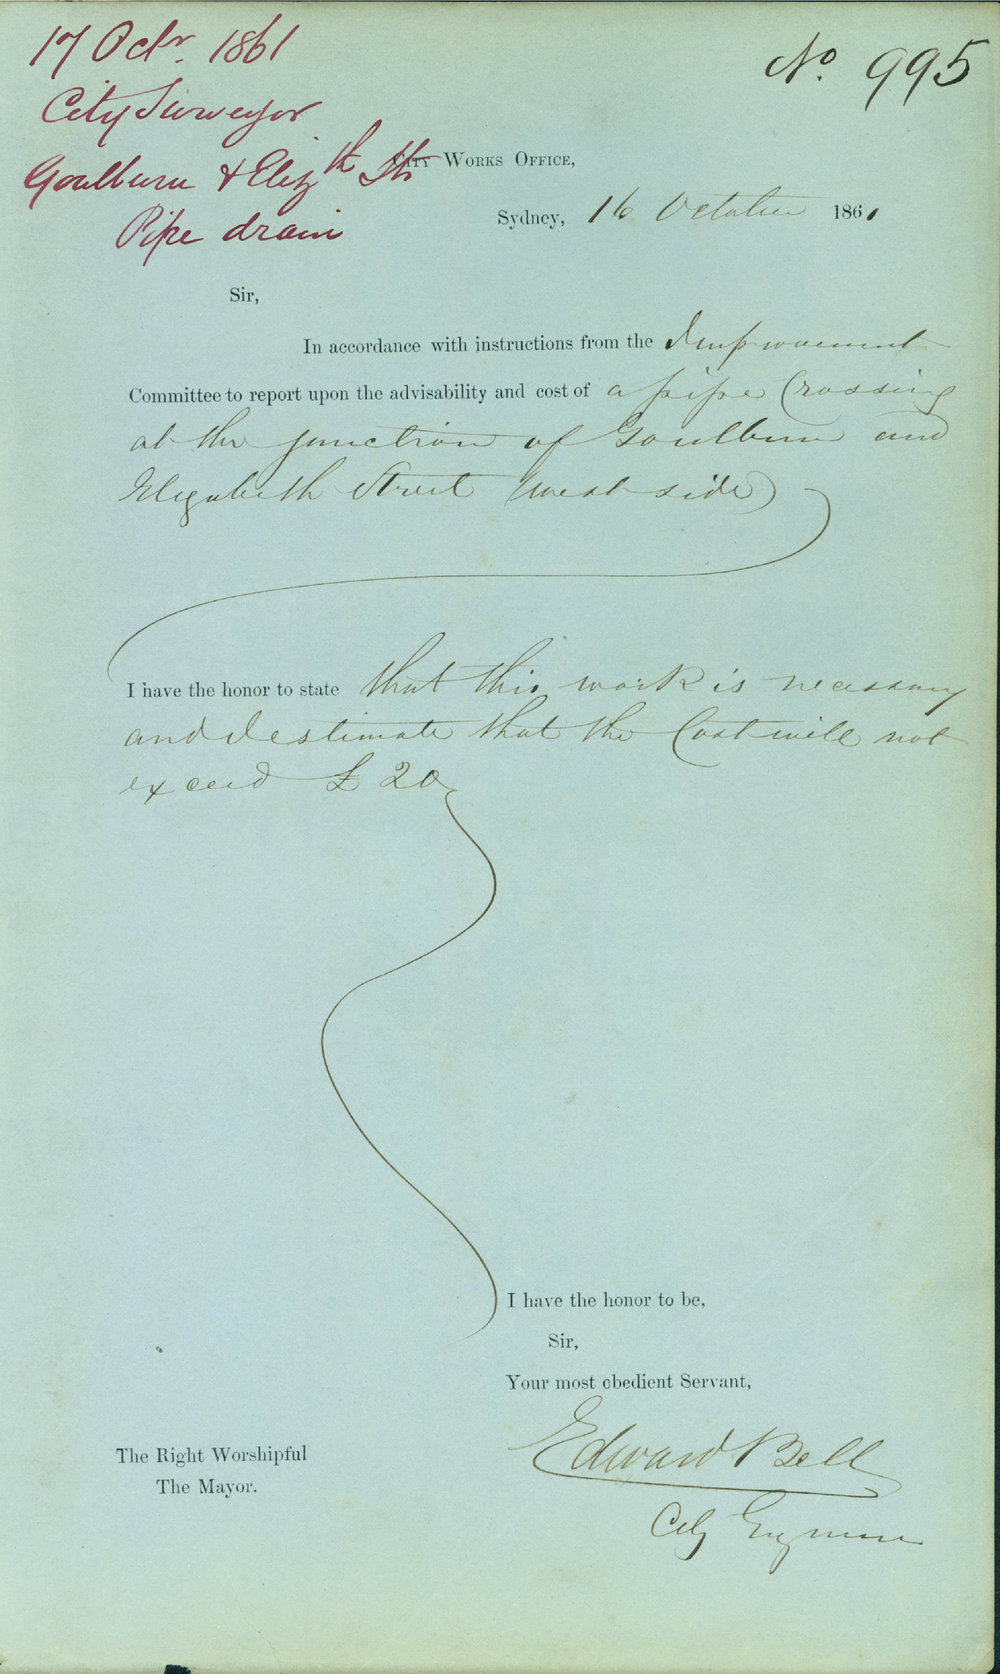 17 Octr. 1861
No. 995
City Surveyor
Goulburn & Elizth Sts
Pipe drain
City Works Office,
Sydney, 16 October 1861
Sir,
In accordance with instructions from the Improvement
Committee to report upon the advisability and cost of a pipe Crossing
at the junction of Goulburn and
Elizabeth Street (west side)
I have the honor to state that this work is necessary
and I estimate that the Cost will not
exceed £20
I have the honor to be,
Sir,
Your most obedient Servant,
Edward Bell
City Engineer
The Right Worshipful
The Mayor.